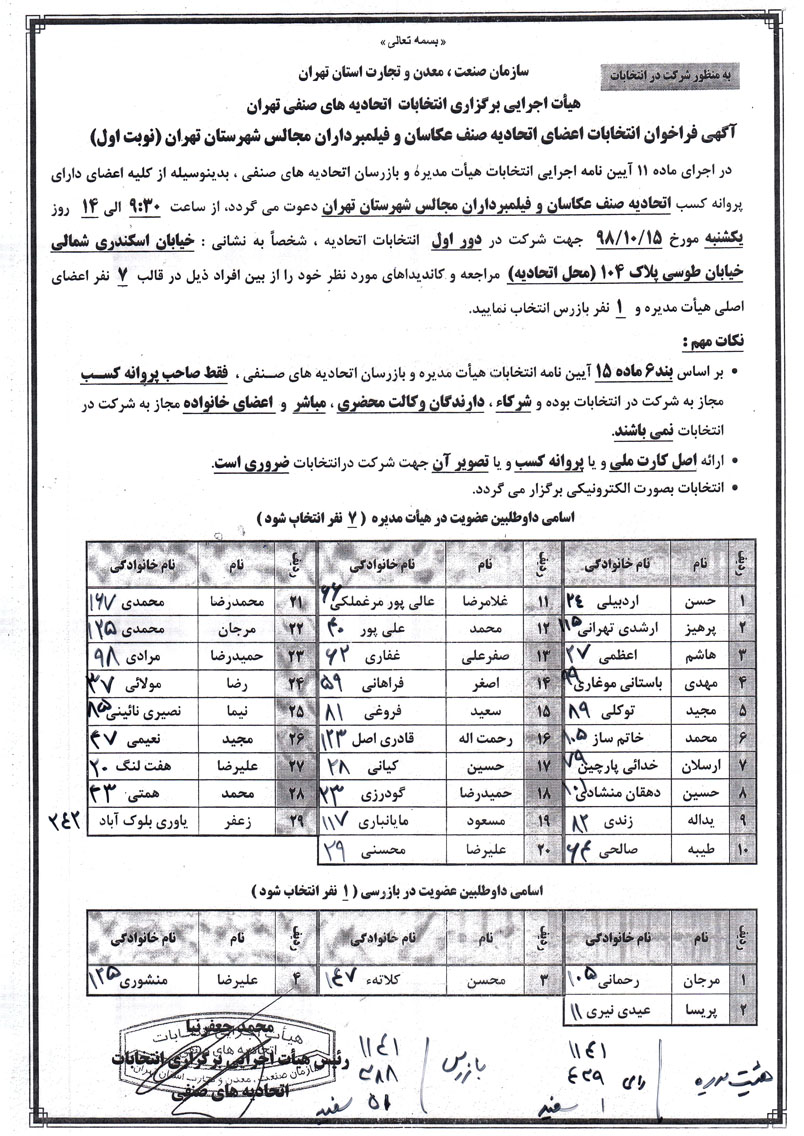 « بسمه تعالی »
به منظور شرکت در انتخابات
سازمان صنعت ، معدن و تجارت استان تهران
هیأت اجرایی برگزاری انتخابات اتحادیه های صنفی تهران
آگهی فراخوان انتخابات اعضای اتحادیه صنف عکاسان و فیلمبرداران مجالس شهرستان تهران (نوبت اول)
در اجرای ماده ۱۱ آیین نامه اجرایی انتخابات هیأت مدیره و بازرسان اتحادیه های صنفی ، بدینوسیله از کلیه اعضای دارای
پروانه کسب اتحادیه صنف عکاسان و فیلمبرداران مجالس شهرستان تهران دعوت می گردد، از ساعت ۹:۳۰ الی ۱۴ روز
یکشنبه مورخ ۹۸/۱۰/۱۵ جهت شرکت در دور اول انتخابات اتحادیه ، شخصاً به نشانی : خیابان اسکندری شمالی
خیابان طوسی پلاک ۱۰۴ (محل اتحادیه) مراجعه و کاندیداهای مورد نظر خود را از بین افراد ذیل در قالب ۷ نفر اعضای
اصلی هیأت مدیره و ۱ نفر بازرس انتخاب نمایید.
نکات مهم :
• بر اساس بند۶ ماده ۱۵ آیین نامه انتخابات هیأت مدیره و بازرسان اتحادیه های صنفی ، فقط صاحب پروانه کسب
مجاز به شرکت در انتخابات بوده و شرکاء ، دارندگان وکالت محضری ، مباشر و اعضای خانواده مجاز به شرکت در
انتخابات نمی باشند.
• ارائه اصل کارت ملی و یا پروانه کسب و یا تصویر آن جهت شرکت درانتخابات ضروری است.
• انتخابات بصورت الکترونیکی برگزار می گردد.
اسامی داوطلبین عضویت در هیأت مدیره ( ۷ نفر انتخاب شود )
ردیف نام نام خانوادگی ردیف نام نام خانوادگی ردیف نام نام خانوادگی
۱ حسن اردبیلی ۲۴ ۱۱ غلامرضا عالی پور مرغملکی ۶۶ ۲۱ محمدرضا محمدی ۱۶۷
۲ پرهیز ارشدی تهرانی ۱۱۵ ۱۲ محمد علی پور ۴۰ ۲۲ مرجان محمدی ۱۲۵
۳ هاشم اعظمی ۲۷ ۱۳ صفرعلی غفاری ۶۲ ۲۳ حمیدرضا مرادی ۹۸
۴ مهدی باستانی موغاری ۹۹ ۱۴ اصغر فراهانی ۵۹ ۲۴ رضا مولائی ۳۷
۵ مجید توکلی ۸۹ ۱۵ سعید فروغی ۸۱ ۲۵ نیما نصیری نائینی ۸۵
۶ محمد خاتم ساز ۱۰۵ ۱۶ رحمت اله قادری اصل ۱۲۳ ۲۶ مجید نعیمی ۴۷
۷ ارسلان خدائی پارچین ۷۹ ۱۷ حسین کیانی ۲۸ ۲۷ علیرضا هفت لنگ ۲۰
۸ حسین دهقان منشادی ۱۰۱ ۱۸ حمیدرضا گودرزی ۲۳ ۲۸ محمد همتی ۴۳
۹ یداله زندی ۸۲ ۱۹ مسعود مایانباری ۱۱۷ ۲۹ زعفر یاوری بلوک آباد ۲۴۲
۱۰ طیبه صالحی ۶۴ ۲۰ علیرضا محسنی ۲۹
اسامی داوطلبین عضویت در بازرسی ( ۱ نفر انتخاب شود )
ردیف نام نام خانوادگی ردیف نام نام خانوادگی ردیف نام نام خانوادگی
۱ مرجان رحمانی ۱۰۵ ۳ محسن کلاتهء ۱۴۷ ۴ علیرضا منشوری ۱۲۵
۲ پریسا عیدی نیری ۱۱
محمد جعفرنیا
رئیس هیأت اجرایی برگزاری انتخابات
اتحادیه های صنفی
هیأت اجرایی انتخابات
اتحادیه های
سازمان صنعت ، معدن و تجارت استان تهران
هیئت مدیره
۱۱۴۱
۴۳۹ رای
۱ سفید
بازرس
۱۱۴۱
۳۸۸
۵۱ سفید